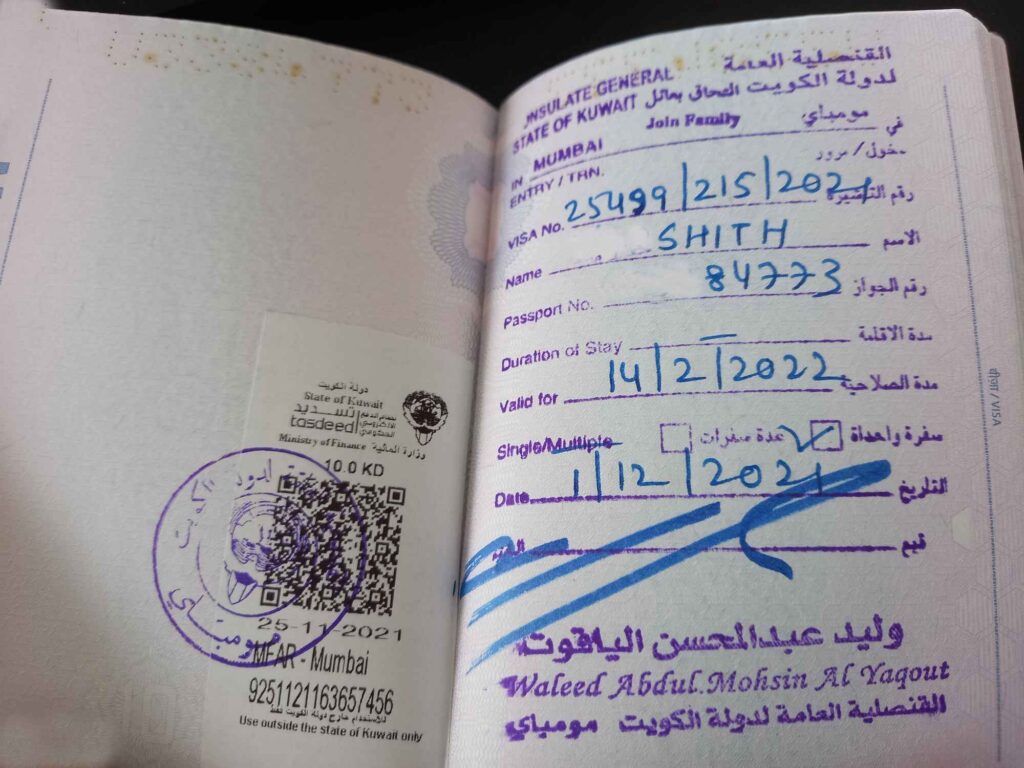 دولة الكويت
State of Kuwait
تسديد
tasdeed
نظام الدفع
الالكتروني
الحكومي
Ministry of Finance وزارة المالية
10.0 KD
25-11-2021
MFAR - Mumbai
9251121163657456
للاستخدام خارج دولة الكويت فقط
Use outside the state of Kuwait only
مومباي
NSULATE GENERAL القنصلية العامة
STATE OF KUWAIT التحاق بعائل لدولة الكويت
Join Family
IN MUMBAI مومباي في
ENTRY / TRN. دخول / مرور
VISA No. 25499/215/2021 رقم التأشيرة
Name SHITH الاسم
Passport No. 84773 رقم الجواز
Duration of Stay — مدة الاقامة
Valid for 14/2/2022 مدة الصلاحية
Single/Multiple عدة سفرات سفرة واحداة
Date 1/12/2021 التاريخ
قبم
وليد عبدالمحسن الياقوت
Waleed Abdul.Mohsin Al Yaqout
القنصلية العامة لدولة الكويت مومباي
वीज़ा / VISA